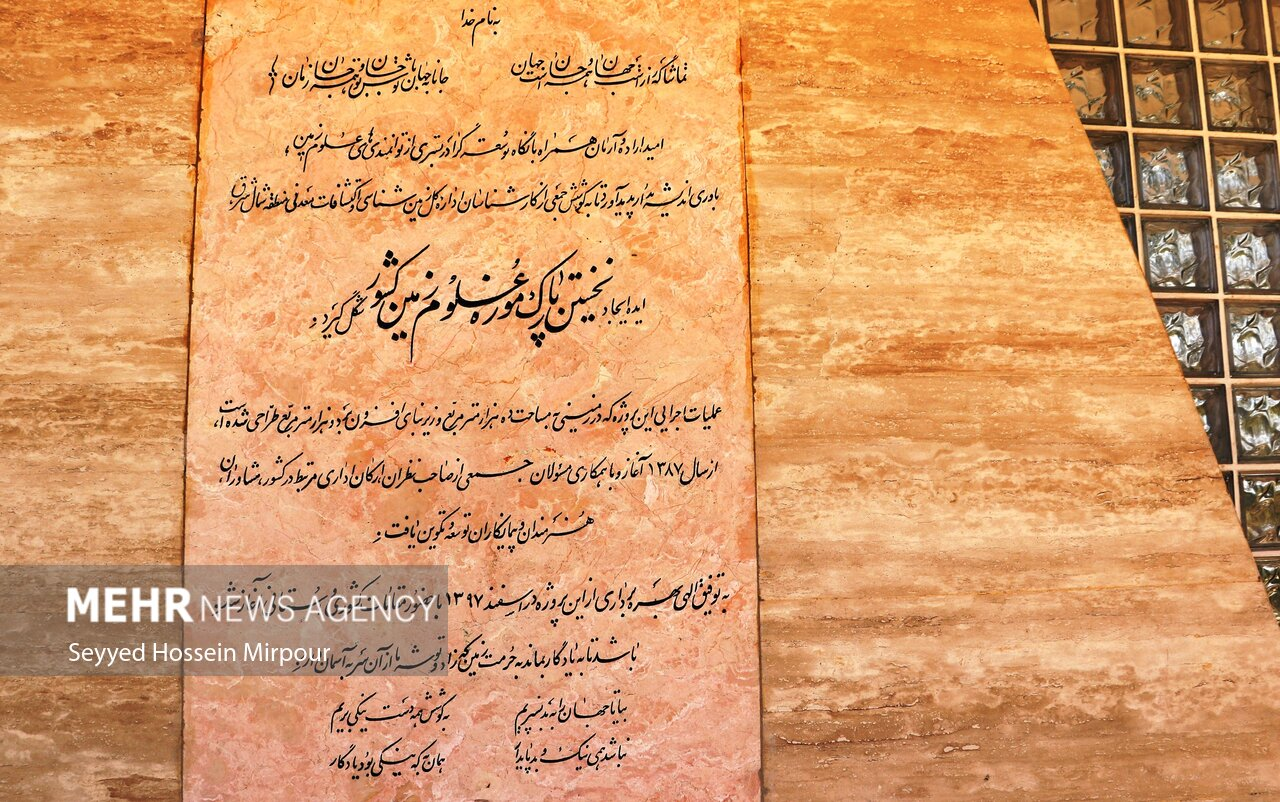 به نام خدا
امید اراده و آرمان همراه با نگاه توسعه گرا در بستری از توانمندی‌های علوم زمین،
باوری اندیشه مدار پدید آورد تا به کوشش جمعی از کارشناسان اداره کل زمین شناسی و اکتشافات معدنی منطقه شمال شرق
ایده ایجاد نخستین پارک موزه علوم زمین کشور شکل گیرد.
عملیات اجرایی این پروژه که در زمینی به مساحت ده هزار متر مربع و زیربنای افزون بر دو هزار متر مربع طراحی شده است،
از سال ۱۳۸۷ آغاز و با همکاری مسئولان جمعی از صاحب نظران، ارکان اداری مرتبط در کشور، مشاوران،
هنرمندان و پیمانکاران توسعه و تکوین یافت.
به توفیق الهی بهره برداری از این پروژه در اسفند ۱۳۹۷
باشد تا به یادگار بماند به حرمت زمین که
بیا تا جهان را به بد نسپریم به کوشش همه دست نیکی بریم
نباشد همی نیک و بد پایدار همان به که نیکی بود یادگار
MEHR NEWS AGENCY
Seyyed Hossein Mirpour